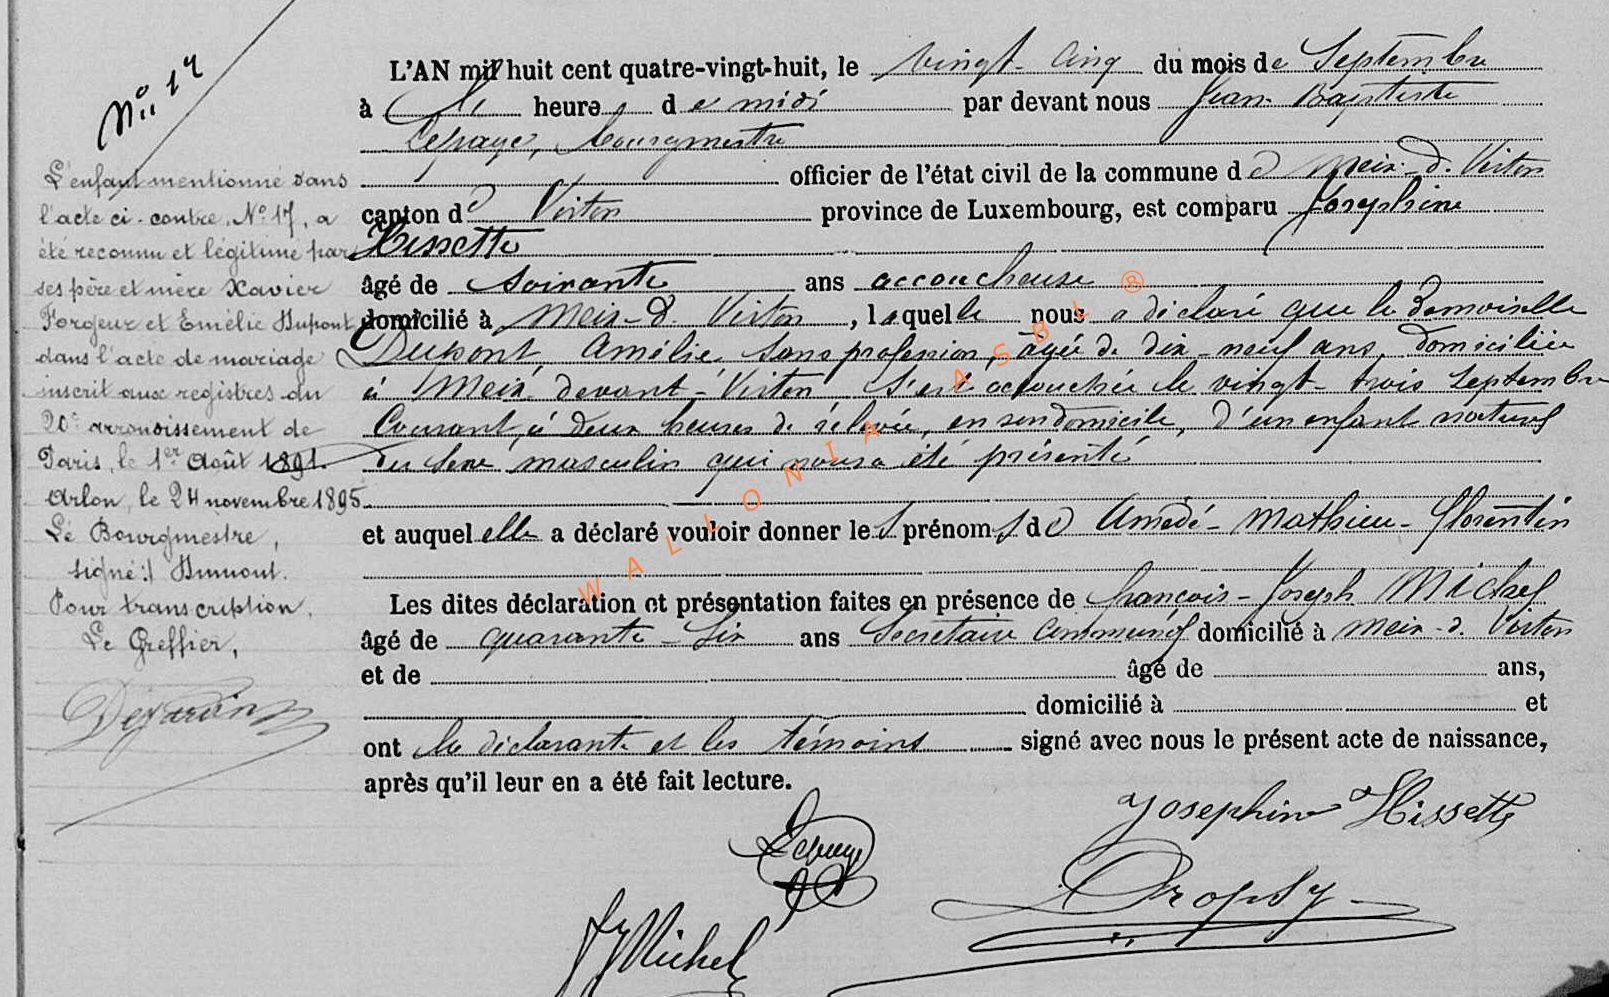 Nº 17
L'enfant mentionné dans
l'acte ci-contre, Nº 17, a
été reconnu et légitimé par
ses père et mère Xavier
Forgeur et Emélie Dupont
dans l'acte de mariage
inscrit aux registres du
20e arrondissement de
Paris, le 1er Août 1891.
Arlon, le 24 novembre 1895
Le Bourgmestre,
signé:
Pour transcription,
Le Greffier,
L'AN mil huit cent quatre-vingt-huit, le vingt-cinq du mois de Septembre
à heure de midi par devant nous Jean Baptiste
Lepage, bourgmestre
officier de l'état civil de la commune de Meix-d. Virton
canton de Virton province de Luxembourg, est comparu Josephine
Hissette
âgé de soixante ans accoucheuse
domicilié à Meix-d. Virton, laquelle nous a déclaré que la demoiselle
Dupont, Amélie, sans profession, âgée de dix-neuf ans, domiciliée
à Meix-devant-Virton s'est accouchée le vingt-trois Septembre
courant, à deux heures de relevée, en son domicile, d'un enfant naturel
du sexe masculin qui nous a été présenté
et auquel elle a déclaré vouloir donner les prénoms de Amedé-Mathieu-Florentin
Les dites déclaration et présentation faites en présence de François-Joseph Michel
âgé de quarante-six ans Secrétaire communal domicilié à Meix-d. Virton
et de âgé de ans,
domicilié à et
ont la déclarante et les témoins signé avec nous le présent acte de naissance,
après qu'il leur en a été fait lecture.
Josephine Hissette
Lepage
Dropsy
FJ Michel
WALLONIA ASBL ®